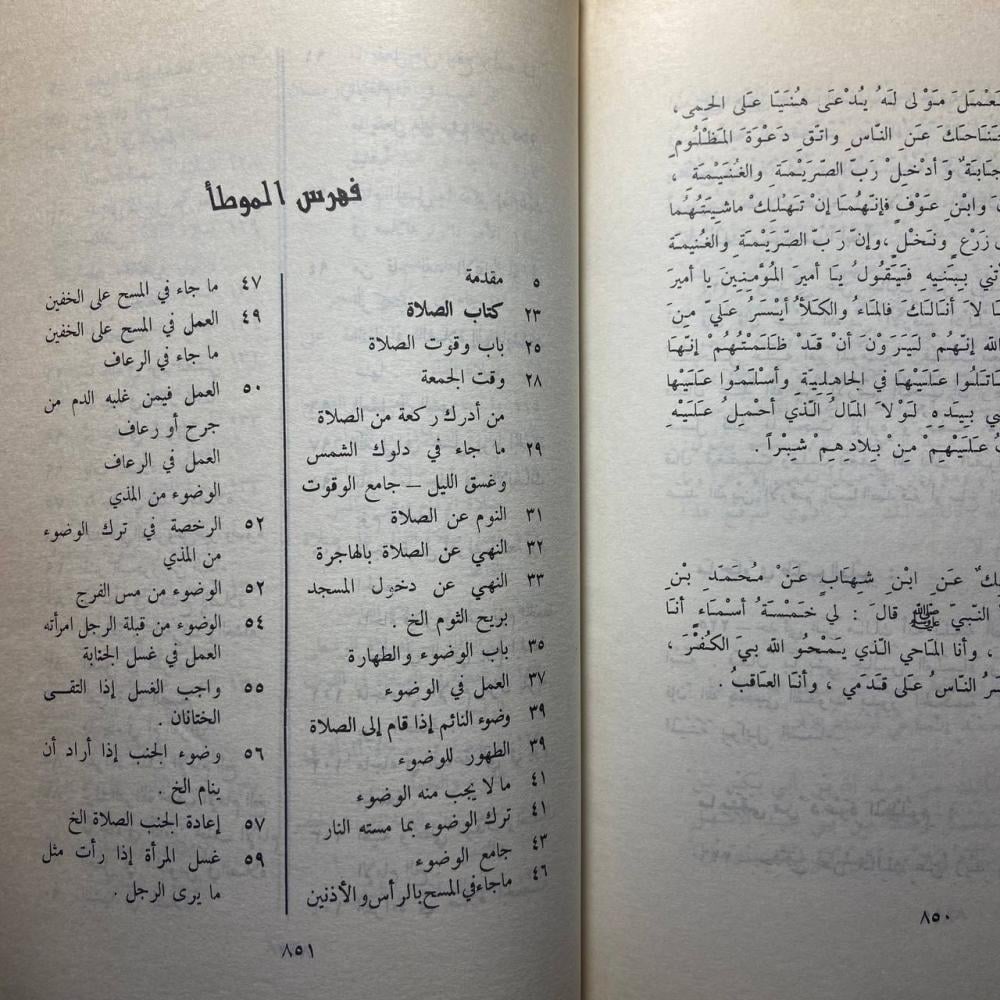 يَعْمَلَ مَوْلى لَهُ يُدْعَى هُنَيّا عَلَى الحِمى ،
جَنَاحَكَ عَنِ النّاسِ واتّقِ دَعْوَةَ المَظْلُومِ
وَأدْخِلْ رَبّ الصّرَيْمَةِ والغُنَيْمَةِ ،
وابْنِ عَوْفٍ فإنّهُمَا إنْ تَهْلِكْ ماشِيَتُهُما
زَرْعٍ ونَخْلٍ ، وإنّ رَبّ الصّرَيْمَةِ والغُنيمَةِ
بِبَنِيهِ فَيَقُولُ يَا أميرَ المُؤمِنِينَ يا أميرَ
لا أبَالَكَ فالمَاءُ والكَلأُ أيْسَرُ عَلَيّ مِنَ
الله إنّهُمْ لَيَرَوْنَ أنْ قَدْ ظَلَمْتُهُمْ إنّهَا
قَاتَلُوا عَلَيْهَا في الجَاهِلِيّةِ وأسْلَمُوا عَلَيْها
بِيَدِهِ لَوْلا المَالُ الّذي أحْمِلُ عَلَيْهِ
عَلَيْهِمْ مِنْ بِلادِهِمْ شِبْراً .
عَنِ ابْنِ شِهَابٍ عَنْ مُحَمّدِ بْنِ
النّبيّ ﷺ قالَ : لي خَمْسَةُ أسْمَاءٍ أنَا
، وأنا المَاحي الّذي يَمْحُو الله بيَ الكُفْرَ ،
النّاسُ عَلى قَدَمي ، وأنَا العَاقبُ .
٨٥٠
فهرس الموطأ
٥ مقدمة
٢٣ كتاب الصلاة
٢٥ باب وقوت الصلاة
٢٨ وقت الجمعة
من أدرك ركعة من الصلاة
٢٩ ما جاء في دلوك الشمس
وغسق الليل – جامع الوقوت
٣١ النوم عن الصلاة
٣٢ النهي عن الصلاة بالهاجرة
٣٣ النهي عن دخول المسجد
بريح الثوم الخ .
٣٥ باب الوضوء والطهارة
٣٧ العمل في الوضوء
٣٩ وضوء النائم إذا قام إلى الصلاة
٣٩ الطهور للوضوء
٤١ ما لا يجب منه الوضوء
٤١ ترك الوضوء بما مسته النار
٤٣ جامع الوضوء
٤٦ ماجاء في المسح بالرأس والأذنين
٤٧ ما جاء في المسح على الخفين
٤٩ العمل في المسح على الخفين
ما جاء في الرعاف
٥٠ العمل فيمن غلبه الدم من
جرح أو رعاف
العمل في الرعاف
الوضوء من المذي
٥٢ الرخصة في ترك الوضوء
من المذي
٥٢ الوضوء من مس الفرج
٥٤ الوضوء من قبلة الرجل امرأته
العمل في غسل الجنابة
٥٥ واجب الغسل إذا التقى
الختانان .
٥٦ وضوء الجنب إذا أراد أن
ينام الخ .
٥٧ إعادة الجنب الصلاة الخ
٥٩ غسل المرأة إذا رأت مثل
ما يرى الرجل .
٨٥١